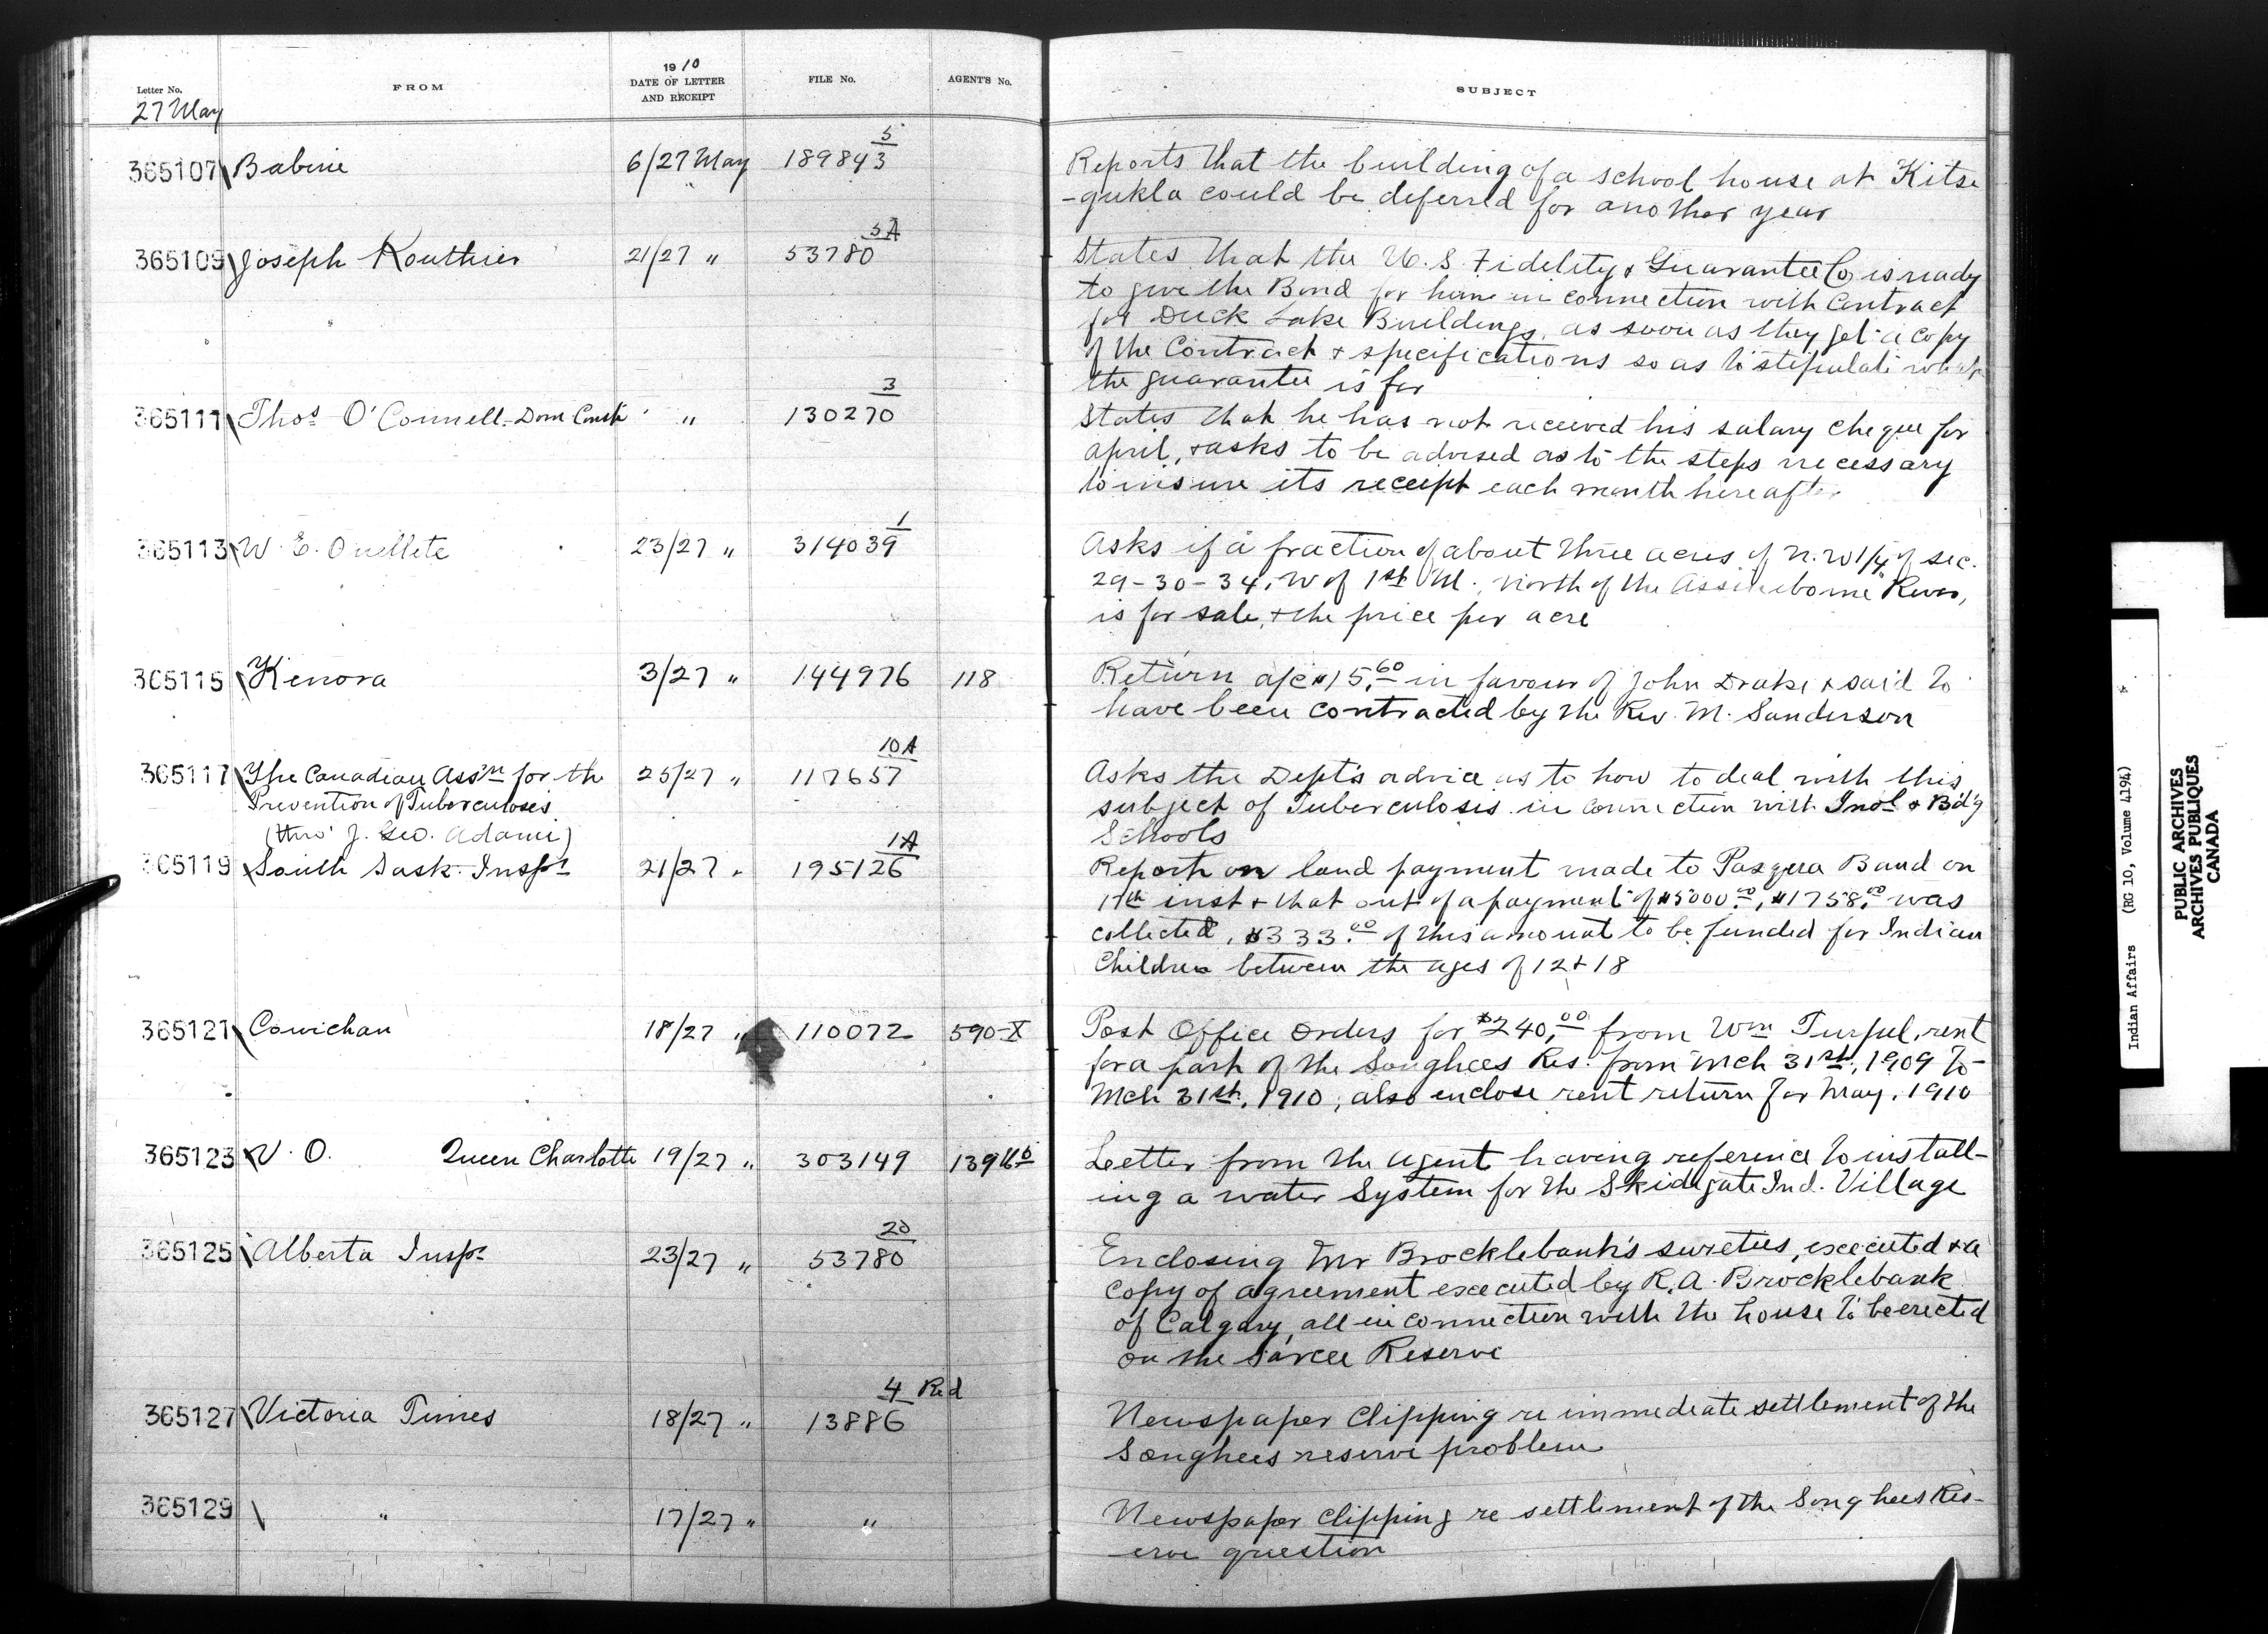 Letter No.
FROM
1910
DATE OF LETTER
AND RECEIPT
FILE No.
AGENT'S No.
SUBJECT
27 May
365107 Babine 6/27 May 189843 5
Reports that the building of a school house at Kitse
-gukla could be deferred for another year
365109 Joseph Routhier 21/27 " 53780 5A
States that the U.S. Fidelity & Guarantee Co is ready
to give the Bond for him in connection with Contract
for Duck Lake Buildings, as soon as they get a copy
of the Contract & specifications so as to stipulate what
the guarantee is for
365111 Thos O'Connell Dom Const " " 130270 3
States that he has not received his salary cheque for
April, & asks to be advised as to the steps necessary
to insure its receipt each month hereafter
365113 W. E. Ouellete 23/27 " 314039 1
Asks if a fraction of about three acres of N.W 1/4 of sec.
29-30-34, W of 1st M. North of the Assineboine River,
is for sale, & the price per acre
365115 Kenora 3/27 " 144976 118
Return a/c $15.60 in favour of John Drake & said to
have been contracted by the Rev. M. Sanderson
365117 The Canadian Ass'n for the 25/27 " 117657 10A
Prevention of Tuberculosis
(thro' J. Geo. Adami)
Asks the Dept's advice as to how to deal with this
subject of Tuberculosis in connection with Indl & Bd'g
Schools
365119 South Sask. Inspr 21/27 " 195126 1A
Report on land payment made to Pasqua Band on
17th inst & that out of a payment of $5000.00, $1758.00 was
collected, $333.00 of this amount to be funded for Indian
Children between the ages of 12 & 18
365121 Cowichan 18/27 " 110072 590-X
Post Office Orders for $240.00 from Wm Turpel, rent
for a part of the Songhees Res. from Mch 31st, 1909 to
Mch 31st, 1910; also enclose rent return for May, 1910
365123 V. O. Queen Charlotte 19/27 " 303149 139
Letter from the Agent having reference to install-
ing a water System for the Skidegate Ind. Village
365125 Alberta Inspr 23/27 " 53780 20
Enclosing Mr Brocklebank's sureties, executed & a
copy of agreement executed by R. A. Brocklebank
of Calgary, all in connection with the house to be erected
on the Sarcee Reserve
365127 Victoria Times 18/27 " 13886 4 Red
Newspaper Clipping re immediate settlement of the
Songhees reserve problem
365129 " 17/27 " "
Newspaper clipping re settlement of the Songhees Res-
erve question
Indian Affairs (RG 10, Volume 4194)
PUBLIC ARCHIVES
ARCHIVES PUBLIQUES
CANADA